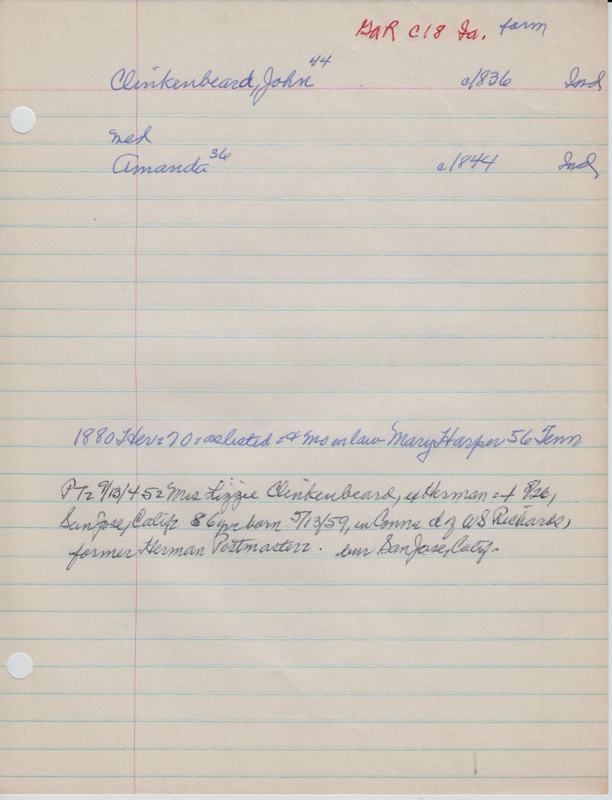 GaR C18 Ia. farm
Clinkenbeard, John 44 c/836 Ind
med
Amanda 36 c/844 Ind
1880 Her = 70 = as listed = & mo in law Mary Harper 56 Tenn
PT = 9/13/45 = Mrs Lizzie Clinkenbeard, ex Herman = + 8/26,
San Jose, Calif = 86 yr born 5/13/59, in Conn = d of WS Richards,
former Herman Postmaster. bur San Jose, Calif.